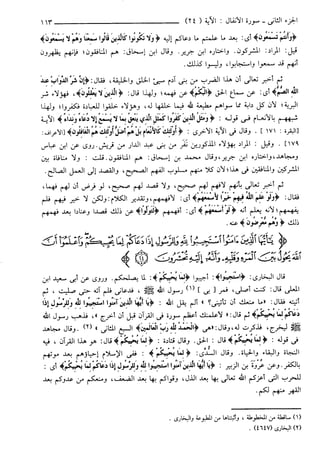 الجزء الثاني - سورة الأنفال : الآية ( ٢٤ ) ١١٣
﴿وأنتم تسمعون﴾ أي: بعد ما علمتم ما دعاكم إليه ﴿ولا تكونوا كالذين قالوا سمعنا وهم لا يسمعون﴾
قيل: المراد: المشركون، واختاره ابن جرير. وقال ابن إسحاق: هم المنافقون؛ فإنهم يظهرون
أنهم قد سمعوا واستجابوا، وليسوا كذلك.
ثم أخبر تعالى أن هذا الضرب من بني آدم سيئ الخلق والخليقة، فقال: ﴿إن شر الدواب عند
الله الصم﴾ أي: عن سماع الحق ﴿البكم﴾ عن فهمه؛ ولهذا قال: ﴿الذين لا يعقلون﴾، فهؤلاء شر
البرية؛ لأن كل دابة مما سواهم مطيعة لله فيما خلقها له، وهؤلاء خلقوا للعبادة فكفروا؛ ولهذا
شبههم بالأنعام في قوله: ﴿ومثل الذين كفروا كمثل الذي ينعق بما لا يسمع إلا دعاء ونداء﴾ الآية
[البقرة : ١٧١ ] . وقال في الآية الأخرى : ﴿أولئك كالأنعام بل هم أضل أولئك هم الغافلون﴾ [الأعراف:
١٧٩] . وقيل : المراد بهؤلاء المذكورين نفر من بني عبد الدار من قريش. روي عن ابن عباس
ومجاهد، واختاره ابن جرير، وقال محمد بن إسحاق: هم المنافقون. قلت : ولا منافاة بين
المشركين والمنافقين في هذا؛ لأن كلا منهم مسلوب الفهم الصحيح، والقصد إلى العمل الصالح.
ثم أخبر تعالى بأنهم لا فهم لهم صحيح، ولا قصد لهم صحيح، لو فرض أن لهم فهما،
فقال: ﴿ولو علم الله فيهم خيرا لأسمعهم﴾ أي: لأفهمهم، وتقدير الكلام: ولكن لا خير فيهم فلم
يفهمهم؛ لأنه يعلم أنه ﴿ولو أسمعهم﴾ أي: أفهمهم ﴿لتولوا﴾ عن ذلك قصدا وعنادا بعد فهمهم
ذلك ﴿وهم معرضون﴾ عنه.
﴿يا أيها الذين آمنوا استجيبوا لله وللرسول إذا دعاكم لما يحييكم واعلموا أن
الله يحول بين المرء وقلبه وأنه إليه تحشرون﴾
قال البخاري: ﴿استجيبوا﴾: أجيبوا ﴿لما يحييكم﴾: لما يصلحكم. وروى عن أبي سعيد ابن
المعلى قال: كنت أصلي، فمر [ بي ] (١) رسول الله ﷺ ، فدعاني فلم آته حتى صليت ، ثم
أتيته فقال: «ما منعك أن تأتيني؟» ألم يقل الله : ﴿يا أيها الذين آمنوا استجيبوا لله وللرسول إذا
دعاكم لما يحييكم﴾ ثم قال: «لأعلمنك أعظم سورة في القرآن قبل أن أخرج»، فذهب رسول الله
ﷺ ليخرج، فذكرت له، وقال: «هي ﴿الحمد لله رب العالمين﴾ السبع المثاني» (٢) . وقال مجاهد
في قوله : ﴿لما يحييكم﴾ قال : الحق. وقال قتادة : ﴿لما يحييكم﴾ قال: هو هذا القرآن ، فيه
النجاة والبقاء والحياة. وقال السدي: ﴿لما يحييكم﴾ : ففي الإسلام إحياؤهم بعد موتهم
بالكفر. وعن عروة بن الزبير : ﴿يا أيها الذين آمنوا استجيبوا لله وللرسول إذا دعاكم لما يحييكم﴾ أي :
للحرب التي أعزكم الله تعالى بها بعد الذل، وقواكم بها بعد الضعف، ومنعكم من عدوكم بعد
القهر منهم لكم.
(١) ساقطة من المخطوطة ، وأثبتناها من المطبوعة والبخاري .
(٢) البخاري (٤٦٤٧) .